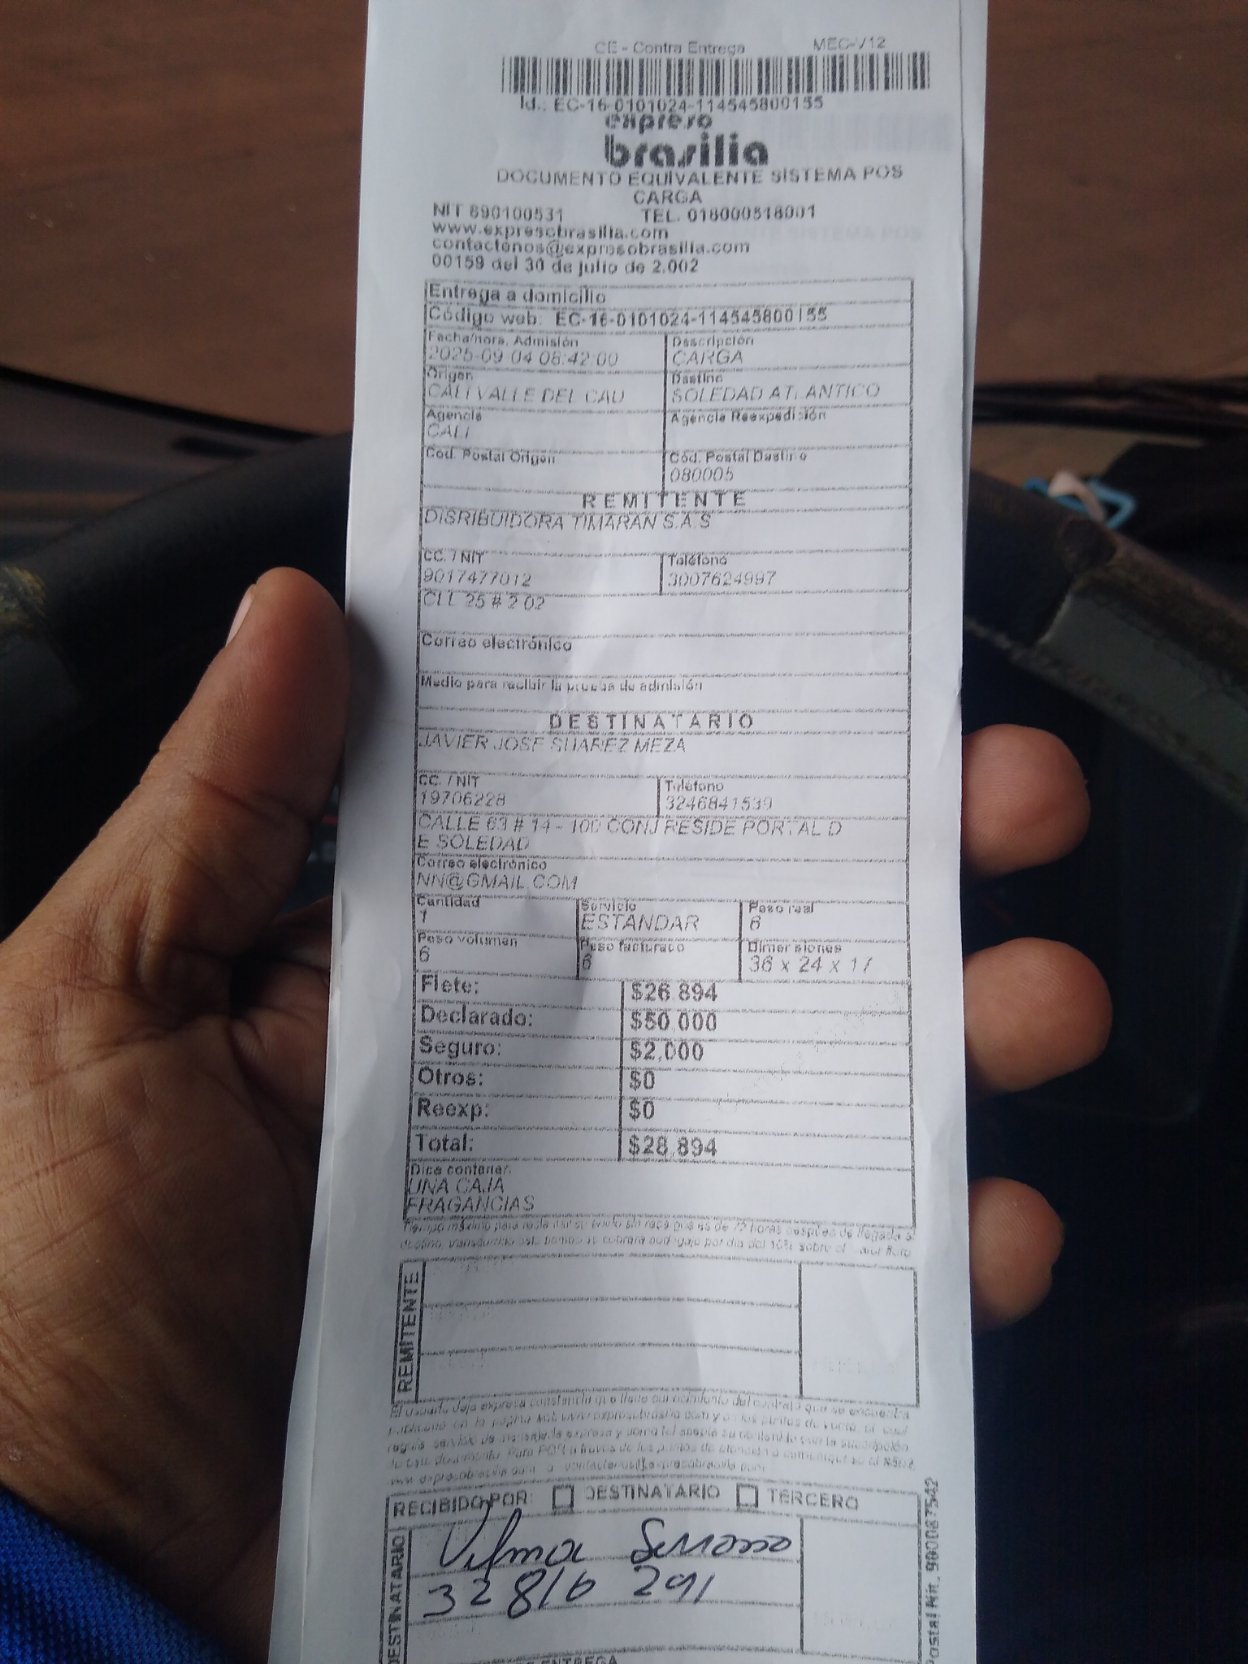 CE - Contra Entrega MEC-V12
Id.: EC-16-0101024-114545800155
expreso
brasilia
DOCUMENTO EQUIVALENTE SISTEMA POS
CARGA
NIT 890100531 TEL. 018000518001
www.expresobrasilia.com
contactenos@expresobrasilia.com
00159 del 30 de julio de 2.002
Entrega a domicilio
Código web: EC-16-0101024-114545800155
Fecha/hora, Admisión Descripción
2025-09-04 08:42:00 CARGA
Origen Destino
CALI VALLE DEL CAU SOLEDAD ATLANTICO
Agencia Agencia Reexpedición
CALI
Cod. Postal Origen Cód. Postal Destino
080005
REMITENTE
DISRIBUIDORA TIMARAN S.A.S
CC. / NIT Teléfono
9017477012 3007624997
CLL 25 # 2 02
Correo electrónico
Medio para recibir la prueba de admisión
DESTINATARIO
JAVIER JOSE SUAREZ MEZA
CC. / NIT Teléfono
19706228 3246841539
CALLE 63 # 14 - 100 CONJ RESIDE PORTAL D
E SOLEDAD
Correo electrónico
NN@GMAIL.COM
Cantidad Servicio Peso real
1 ESTANDAR 6
Peso volumen Peso facturado Dimensiones
6 6 36 x 24 x 17
Flete: $26.894
Declarado: $50.000
Seguro: $2.000
Otros: $0
Reexp: $0
Total: $28.894
Dice contener:
UNA CAJA
FRAGANCIAS
REMITENTE
RECIBIDO POR: DESTINATARIO TERCERO
DESTINATARIO
Vilma Serrano
32816 291
Postal Nit. 900087542
ENTREGA